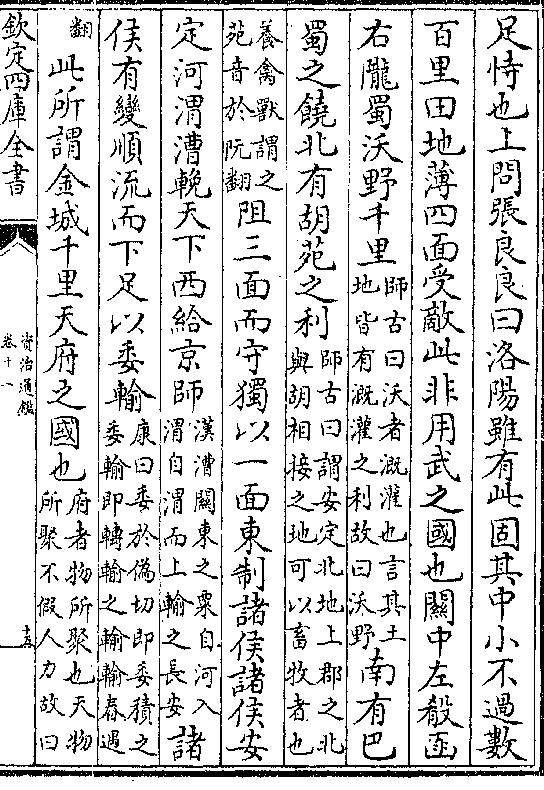 足恃也上問張良良曰洛陽雖有此固其中小不過數
百里田地薄四面受敵此非用武之國也關中左殽函
右隴蜀沃野千里師古曰沃者溉灌也言其土地皆有溉灌之利故曰沃野南有巴
蜀之饒北有胡苑之利師古曰謂安定北地上郡之北與胡相接之地可以畜牧者也
養禽獸謂之苑音於阮翻阻三面而守獨以一面東制諸侯諸侯安
定河渭漕輓天下西給京師漢漕關東之粟自河入渭自渭而上輸之長安諸
侯有變順流而下足以委輸康曰委於偽切即委積之委輸即轉輸之輸輸舂遇
翻此所謂金城千里天府之國也府者物所聚也天物所聚不假人力故曰
欽定四庫全書
資治通鑑
卷十一